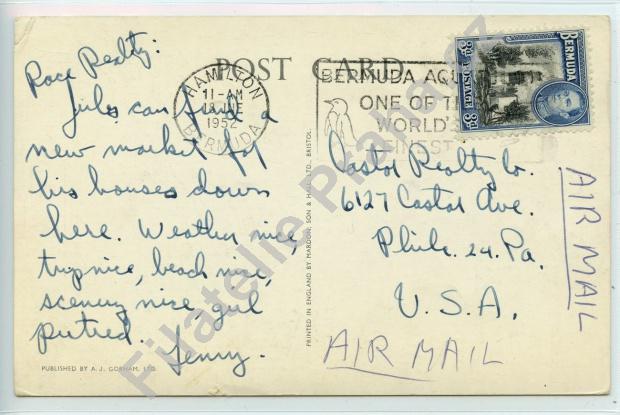 POST CARD
Race Realty:
Jules can find a
new market for
his houses down
here. Weather nice,
trip nice, beach nice,
scenery nice, girl
putrid.
Lenny.
PUBLISHED BY A. J. GORHAM, LTD.
HAMILTON
11-AM
1952
BERMUDA
BERMUDA AQU
ONE OF TH
WORLD'S
FINEST
BERMUDA
POSTAGE
3d
3d
PRINTED IN ENGLAND BY MARDON, SON & HALL, LTD., BRISTOL.
Castor Realty Co.
6127 Castor Ave.
Phila. 24. Pa.
U.S.A.
AIR MAIL
AIR MAIL
Filatelie Praha.cz